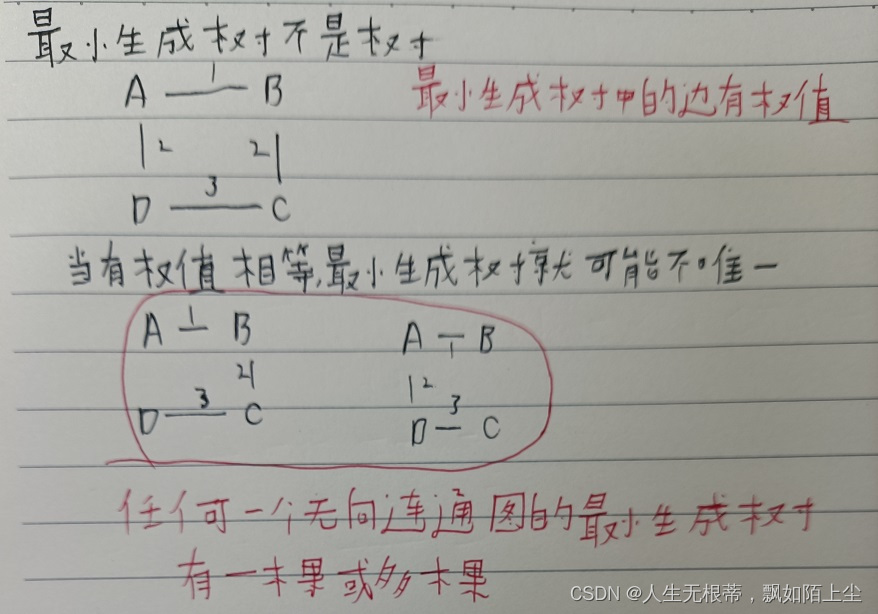 最小生成树不是树
A 1 B
最小生成树中的边有权值
2 2
D 3 C
当有权值相等,最小生成树就可能不唯一
A 1 B A 1 B
2 2
D 3 C D 3 C
任何一个无向连通图的最小生成树
有一棵或多棵
CSDN @人生无根蒂，飘如陌上尘